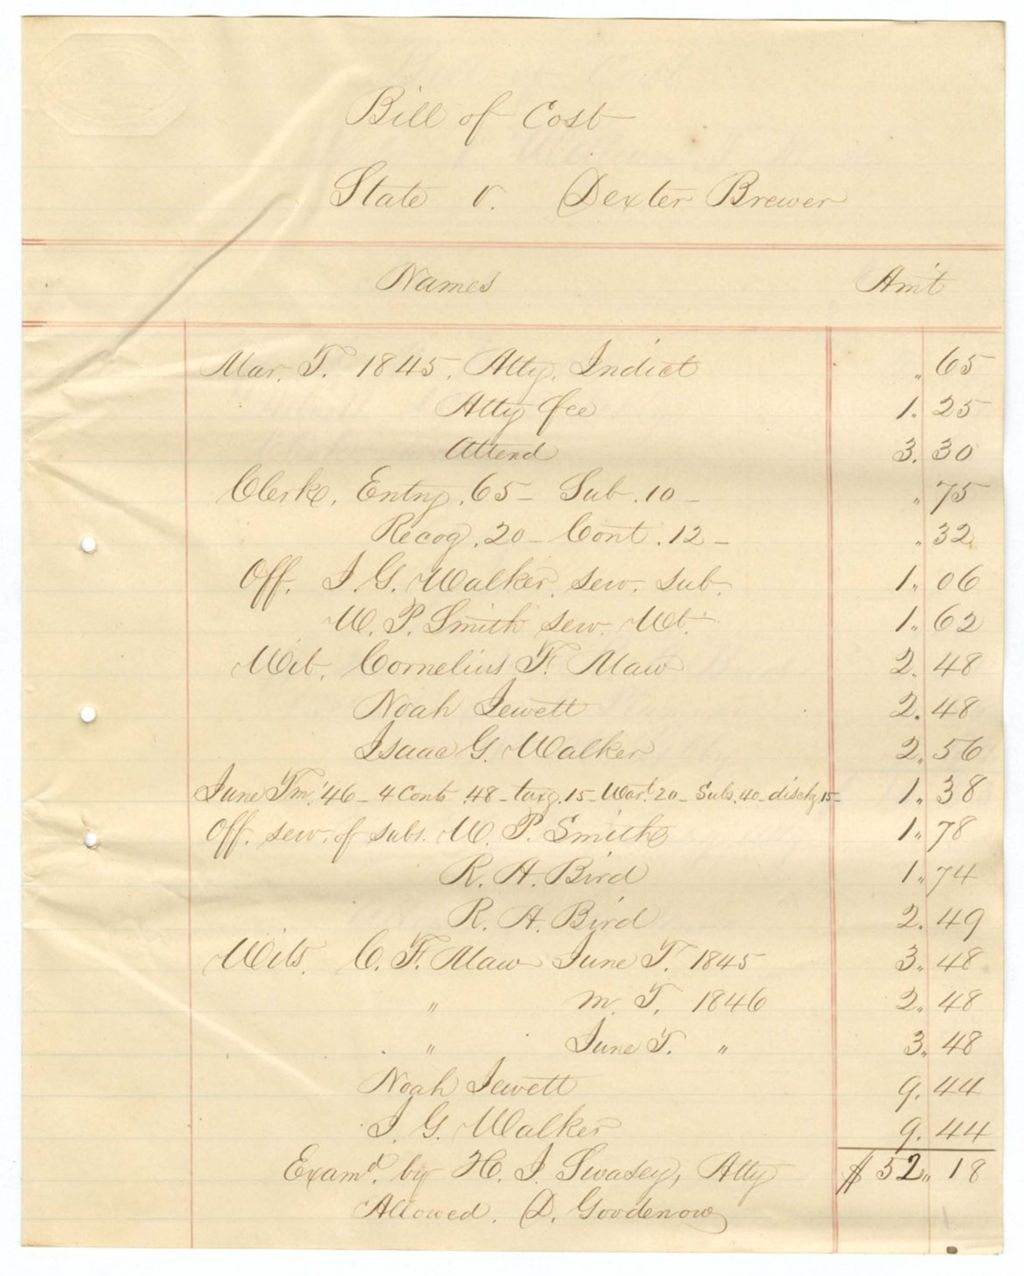 Bill of Cost
State v. Dexter Brewer
Names Am't
Mar. T. 1845. Atty. Indict .. 65
Atty fee 1. 25
Attend 3. 30
Clerk. Entry .65 - Sub .10 - .. 75
Recog .20 - Cont .12 - .. 32
Off. I. G. Walker. serv. sub. 1.. 06
W. P. Smith serv. Wt. 1.. 62
Wit. Cornelius F. Maw 2. 48
Noah Jewett 2. 48
Isaac G. Walker 2. 56
June Tm. '46 - 4 Cont .48 - taxg .15 - War't 20 - Subs .40 - dischg 15 - 1. 38
Off. serv. of subs. W. P. Smith 1.. 78
R. H. Bird 1.. 74
R. H. Bird 2. 49
Wits. C. F. Maw June T. 1845 3.. 48
" M. T. 1846 2. 48
" June T. " 3. 48
Noah Jewett 9. 44
I. G. Walker 9. 44
Exam'd. by H. I. Swasey, Atty $ 52.. 18
Allowed. D. Goodenow